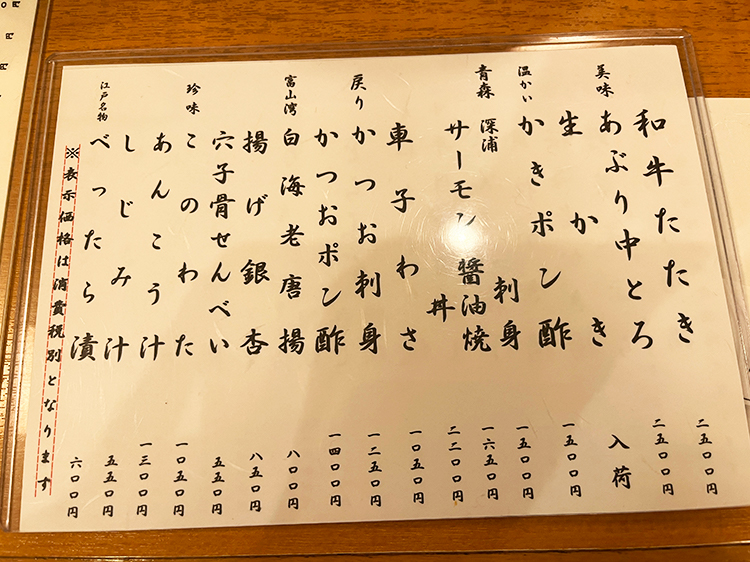 和牛たたき 二五〇〇円
美味 あぶり中とろ 二五〇〇円
生かき 入荷
温かい かきポン酢 一五〇〇円
青森 深浦 サーモン 刺身 一五〇〇円
醤油焼 一六五〇円
丼 二二〇〇円
車子わさ 一〇五〇円
戻りかつお刺身 一二五〇円
かつおポン酢 一四〇〇円
富山湾 白海老唐揚 八〇〇円
揚げ銀杏 八五〇円
穴子骨せんべい 五五〇円
珍味 このわた 一〇五〇円
あんこう汁 一三〇〇円
しじみ汁 五五〇円
江戸名物 べったら漬 六〇〇円
※表示価格は消費税別となります